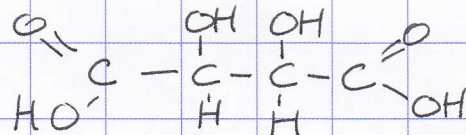 O OH OH O
C — C — C — C
HO H H OH